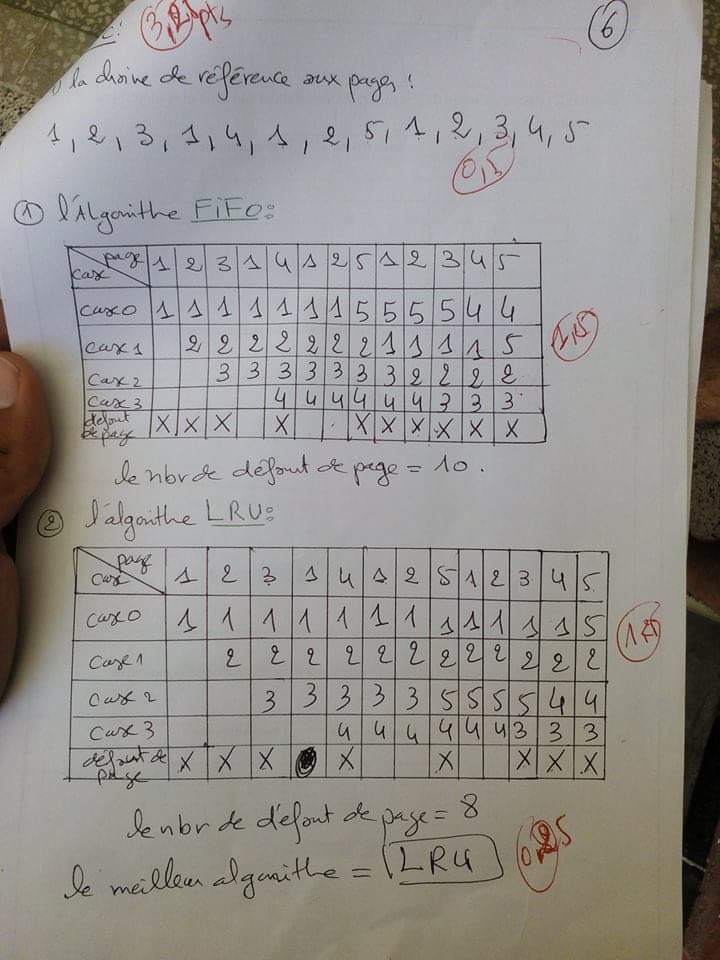 3,25pts
6
la chaine de référence aux pages :
1, 2, 3, 1, 4, 1, 2, 5, 1, 2, 3, 4, 5
0,5
① l'Algorithe FiFo:
page
case 1 2 3 1 4 1 2 5 1 2 3 4 5
case 0 1 1 1 1 1 1 1 5 5 5 5 4 4
case 1 2 2 2 2 2 2 2 1 1 1 1 5
case 2 3 3 3 3 3 3 3 2 2 2 2
case 3 4 4 4 4 4 4 3 3 3
1,5
défaut
de page X X X X X X X X X X
le nbr de défaut de page = 10.
② l'algorithe LRU:
page
case 1 2 3 1 4 1 2 5 1 2 3 4 5
case 0 1 1 1 1 1 1 1 1 1 1 1 1 5
case 1 2 2 2 2 2 2 2 2 2 2 2 2
case 2 3 3 3 3 3 5 5 5 5 4 4
case 3 4 4 4 4 4 4 3 3 3
défaut de
page X X X X X X X X
le nbr de défaut de page = 8
le meilleur algorithe = LRU